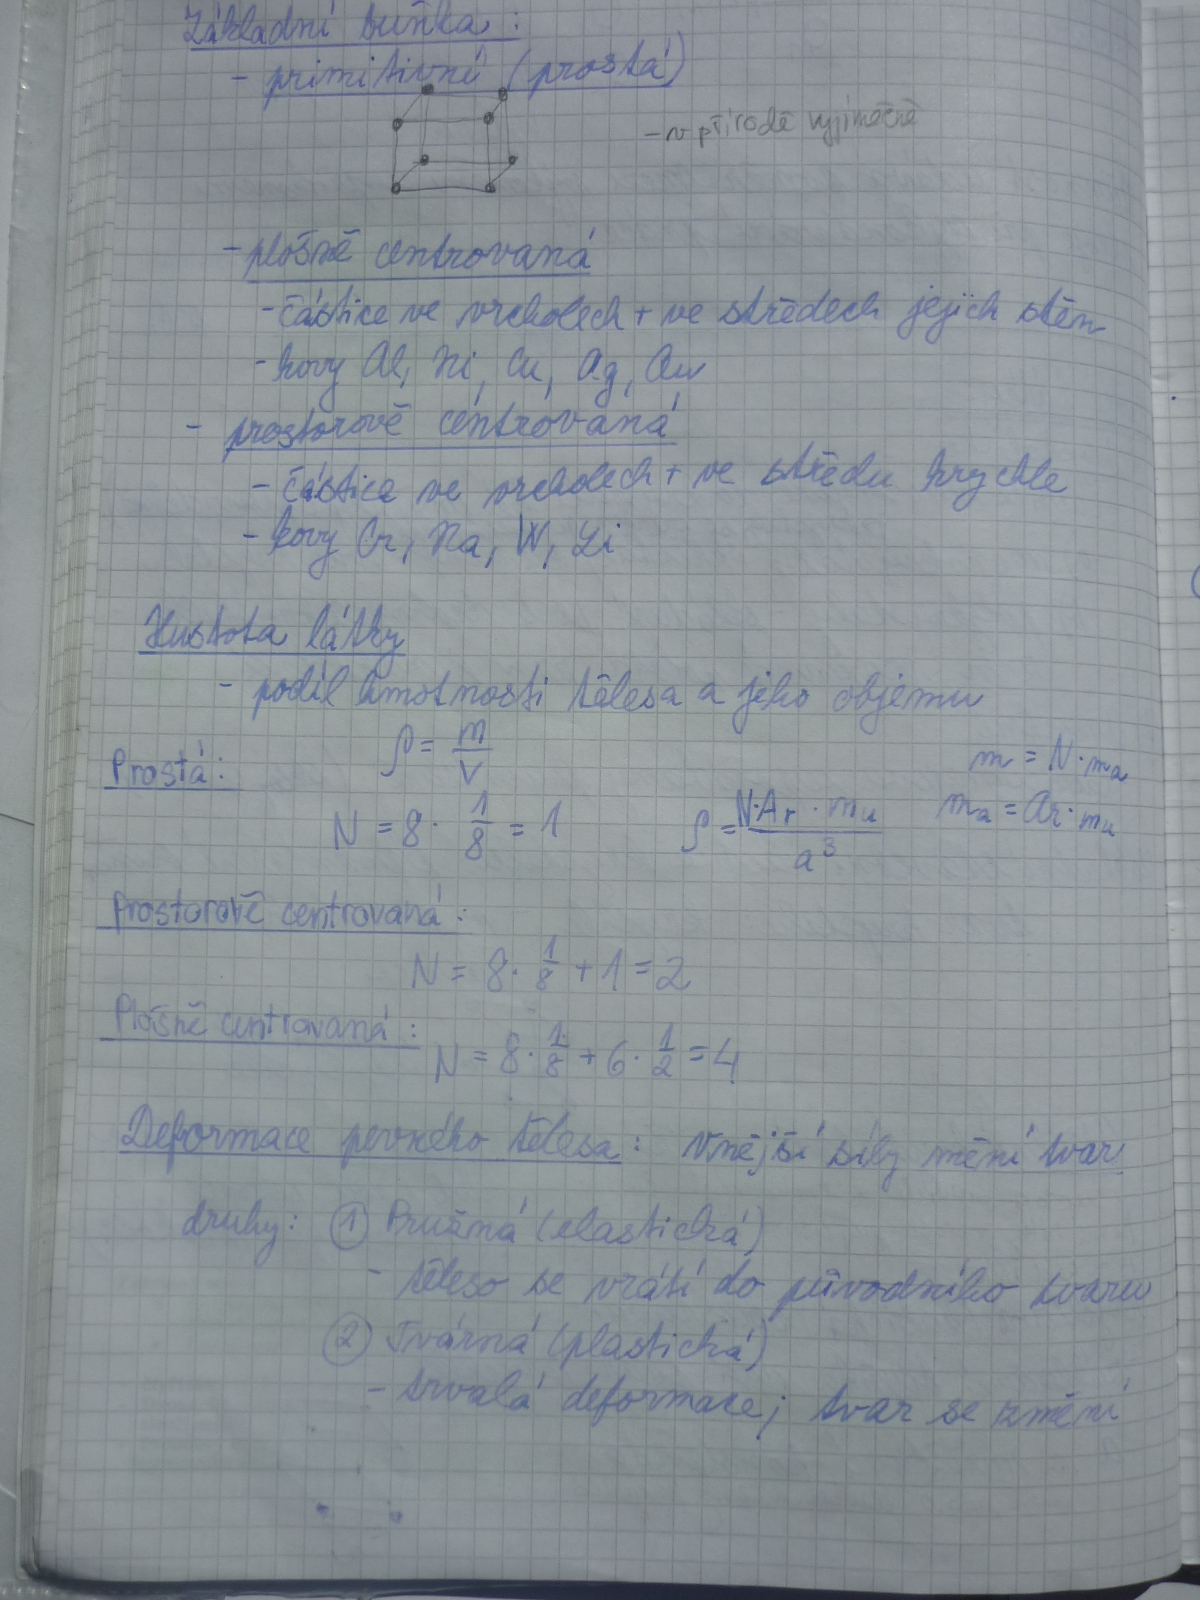 Základní buňka:
- primitivní (prostá)
- v přírodě vyjímečně
- plošně centrovaná
- částice ve vrcholech + ve středech jejich stěn
- kovy Al, Ni, Cu, Ag, Au
- prostorově centrovaná
- částice ve vrcholech + ve středu krychle
- kovy Cr, Na, W, Li
Hustota látky
- podíl hmotnosti tělesa a jeho objemu
ρ = m/V
m = N · mₐ
Prostá:
N = 8 · 1/8 = 1
ρ = N·Aᵣ · mᵤ / a³
mₐ = Ar · mᵤ
Prostorově centrovaná:
N = 8 · 1/8 + 1 = 2
Plošně centrovaná:
N = 8 · 1/8 + 6 · 1/2 = 4
Deformace pevného tělesa: Vnější síly mění tvar
druhy: ① Pružná (elastická)
- těleso se vrátí do původního tvaru
② Tvárná (plastická)
- trvalá deformace; tvar se změní